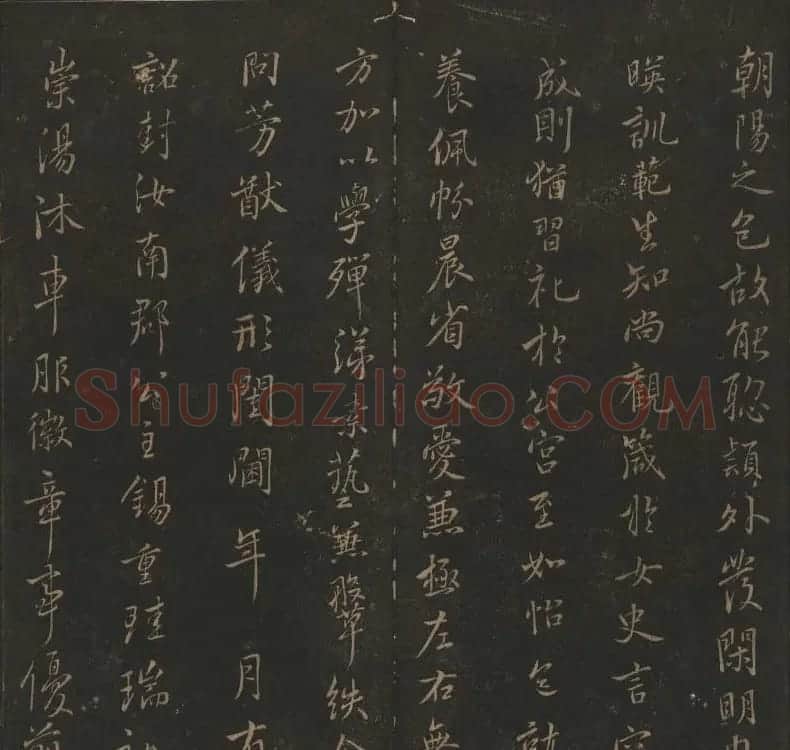 朝陽之色故能聡頴外發閑明
暎訓範生知尚觀箴於女史言
成則猶習礼於公宮至如怡色
養佩帉晨省敬愛兼極左右無
方加以學殫綈素藝兼鞶紩
問芳猷儀形閨閫年 月有
詔封汝南郡公主錫重珪瑞
崇湯沐車服徽章事優
Shufaziliao.COM